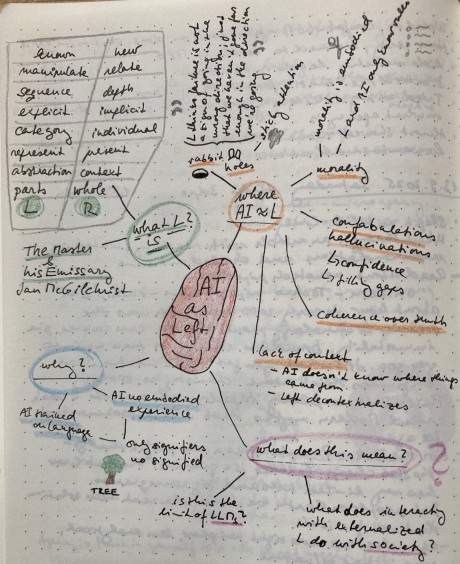 known new
manipulate relate
sequence depth
explicit implicit
category individual
represent present
abstraction context
parts whole
L R
what L?
is
The Master
&
his Emissary
Ian McGilchrist
L thinks failure is not
a sign of going in the
wrong direction; just
that we haven't gone far
enough in the direction
we're going
sticky attention
rabbit
holes
where
AI ≈ L
morality is embodied
L and AI only know rules
morality
confabulations
hallucinations
↳ confidence
↳ filling gaps
coherence over truth
AI
as
Left
lack of context
- AI doesn't know where things
came from
- Left decontextualizes
why?
AI trained
on language
AI no embodied
experience
only signifiers
no signified
TREE
what does this mean?
?
is this the
limit of LLMs?
what does interacting
with externalized
L do with society?